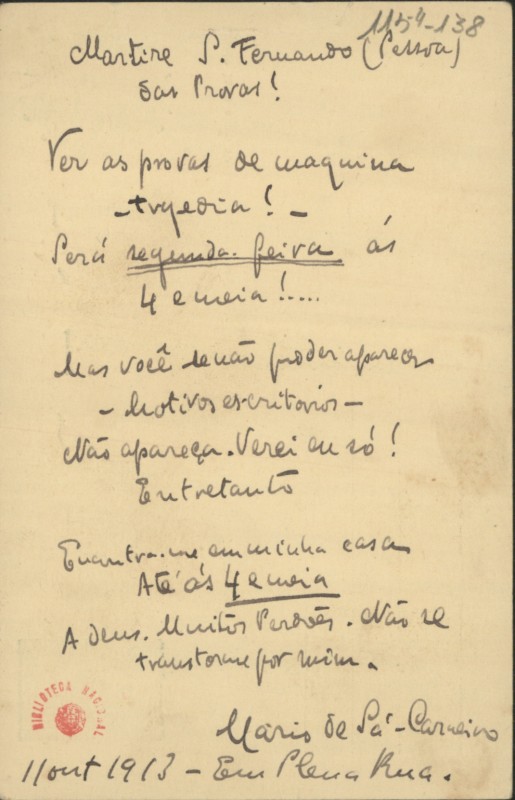 115⁴-138
Martire S. Fernando (Pessoa)
das Provas!
Ver as provas de maquina
- trgedia! -
Será segunda-feira ás
4 e meia!.....
Mas você se não poder aparecer
- Motivos escritorios -
Não apareça. Verei eu só!
Entretanto
Encontra-me em minha casa
Até ás 4 e meia
Adeus. Muitos Perdões. Não se
transtorne por mim.
BIBLIOTECA NACIONAL
Mário de Sá-Carneiro
11 out 1913 - Em Plena Rua.